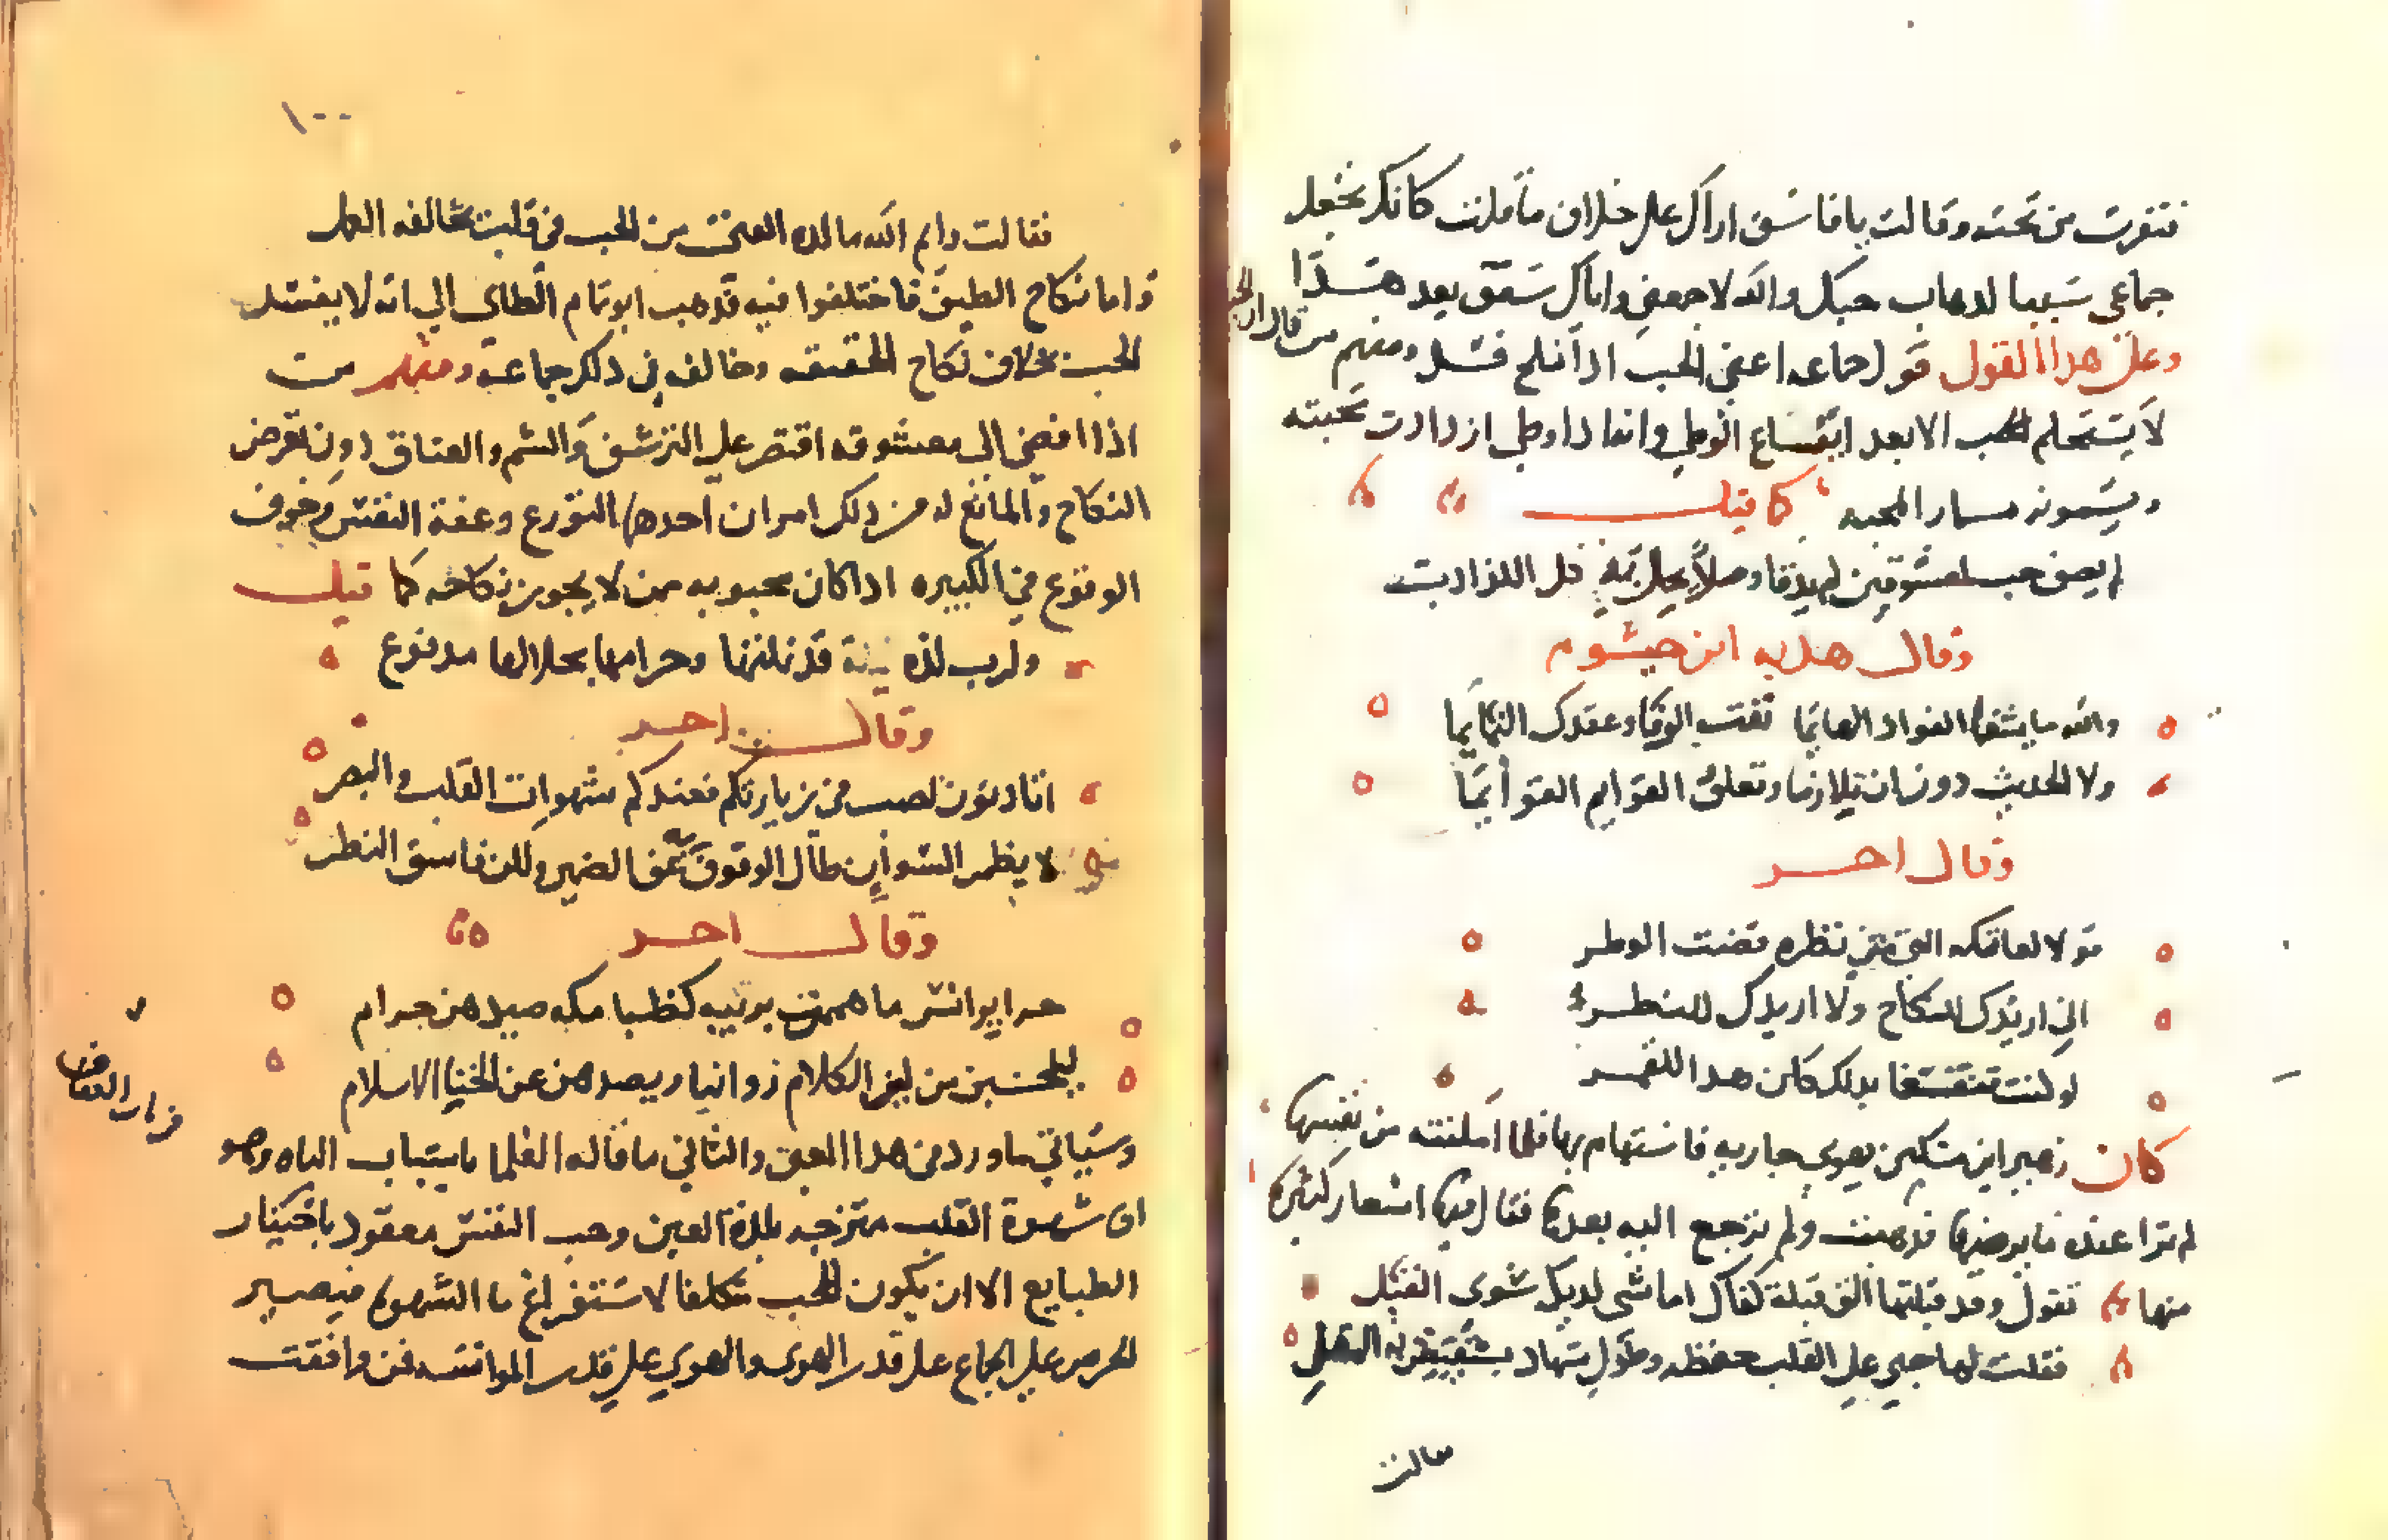 فنفرت من تحته وقالت يا فاسق اراك على خلاف ما قلت كانك تجعل
جماعي سببا لدهاب حبك والله لا جمعني واياك سقف بعد هدا
وعلى هدا القول قول جماعه اعني الحب ادا نكح فسد ومنهم من قال ان الحب
لا يستحكم الحب الا بعد ايقساع الوطي وانه ادا وطي ازدادت محبته
ويسمونه مسمار المحبه كما قيل
لم يصف حب لمعشوقين لم يذقا وصلاً يجل على كل اللذاديت
وقال هدبه ابن خيشوم
والله ما يشفي الفواد الهايما نفث الرقا وعقدك التمايما
ولا الحديث دون ان تلازما وتعلق القوايم القوايما
وقال اخر
قولا لعاتكه التي في نظره قضت الوطر
اني اريدك للنكاح ولا اريدك للنظر
لو كنت مقتنعا بدلك كان هدا القمر
كان زهير ابن مسكين يهوى جاريه فاستهام بها فلما امكنته من نفسها
لم تر عنده ما يرضيها فدهبت ولم ترجع اليه بعدها فقال فيها اشعار كثيرة
منها تقول وقد قبلتها الف قبلة كفاك اما شي لديك سوى القبل
فقلت لها حب على القلب حفظه وطول سهاد تستفيض به المقل
فقالت
١٠٠
فقالت وايم الله ما لده الفتى من الحب في قلب يخالفه العمل
واما نكاح الطيف فاختلفوا فيه فدهب ابو تمام الطاي الي انه لا يفسد
الحب بخلاف نكاح الحقيقه وخالفه في دلك جماعة ومنهم من
اذا افضي الى معشوقه اقتصر على الترشف والشم والعناق دون تعرض
النكاح والمانع له من دلك امران احدها التورع وعفة النفس وخوف
الوقوع في الكبيره ادا كان محبوبه ممن لا يجوز نكاحه كما قيل
ولرب لذة ليلة قد نلتها وحرامها بحلالها مدفوع
وقال اخر
اتادنون لصب في زيارتكم فعندكم شهوات القلب والبصر
لا يظهر السو ان طال الوقوف به عف الضمير ولكن فاسق النظر
وقال اخر
حراير انس ما هممن بريبه كظبا مكه صيدهن حرام
يحسبن من لين الكلام زوانيا ويصدهن عن الخنا الاسلام
وسياتي ما ورد من هدا المعنى والثاني ما قاله العلما باسباب الباه وهو
ان شهوة القلب ممتزجه بلدة العين وحب النفس معقود باختيار
الطبايع الا ان يكون المحب متكلفا لاستفراغ ما الشهوه فيصير
الحرص على الجماع على قدر الهوى والهوى على قدر الموافقه فمن وافقت